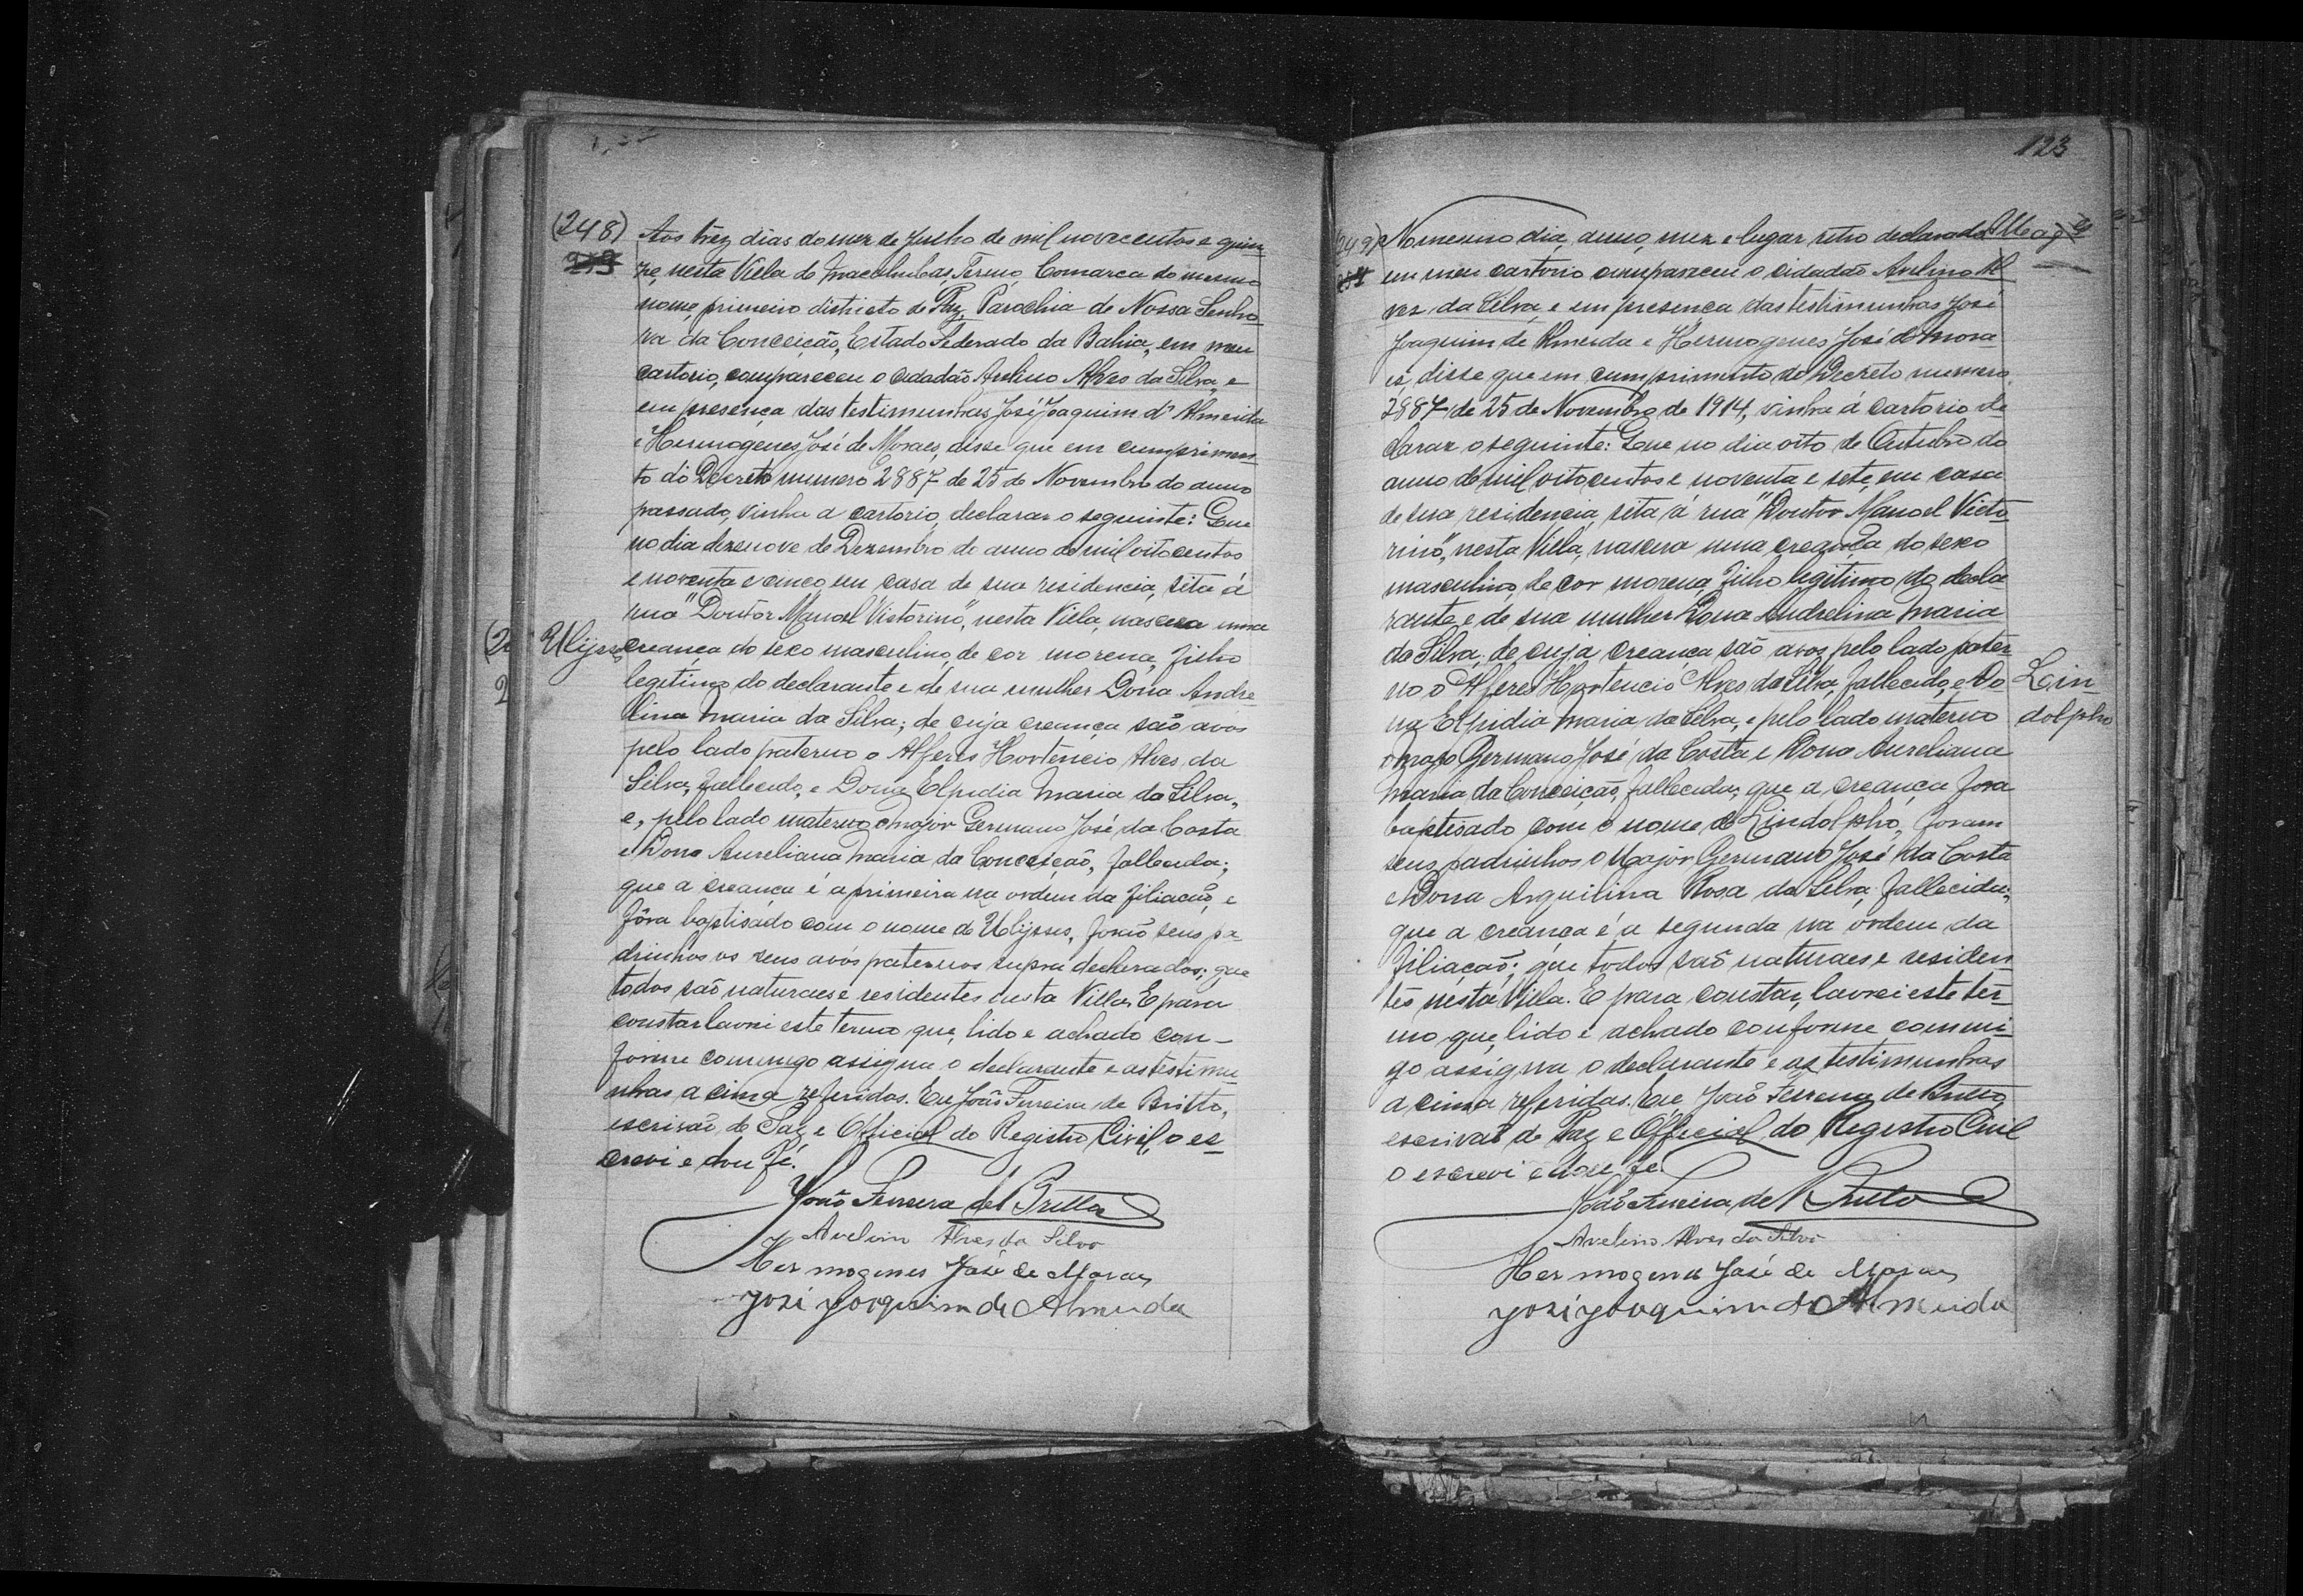 (248)
Aos trez dias do mez de Julho de mil novecentos e quin-
ze, nesta Villa de Macahubas, Termo, Comarca do mesmo
nome, primeiro districto de Paz, Parochia de Nossa Senho-
ra da Conceição, Estado Federado da Bahia, em meu
cartorio, compareceu o cidadão Avelino Alves da Silva, e
em presença das testimunhas José Joaquim d'Almeida
e Hermogenes José de Moraes, disse que em cumprimen-
to do Decreto numero 2887 de 25 de Novembro do anno
passado, vinha a cartorio, declarar o seguinte: Que
no dia dezenove de Dezembro do anno de mil oitocentos
e noventa e cinco, em casa de sua residencia, sita á
rua "Doutor Manoel Victorino", nesta Villa, nascera uma
Ulysses
creança do sexo masculino, de cor morena, filho
legitimo do declarante e de sua mulher Dona Andre-
lina Maria da Silva; de cuja creança são avos
pelo lado paterno o Alferes Hortencio Alves da
Silva, fallecido, e Dona Elpidia Maria da Silva,
e, pelo lado materno o Major Germano José da Costa
e Dona Aureliana Maria da Conceição, fallecida;
que a creança é a primeira na ordem da filiação, e
fôra baptisado com o nome de Ulysses, forão seus pa-
drinhos os seus avós paternos supra declarados; que
todos são naturaes e residentes nesta Villa. E para
constar lavrei este termo que, lido e achado con-
forme commigo assigna o declarante e as testimu-
nhas a cima referidas. Eu João Ferreira de Britto,
escrivão de Paz e Official do Registro Civil, o es-
crevi e dou fé.
João Ferreira de Britto
Avelino Alves da Silva
Hermogenes José de Moraes
José Joaquim de Almeida
123
(249)
No mesmo dia, anno, mez e lugar retro declarado
em meu cartorio compareceu o cidadão Avelino Al-
ves da Silva, e em presença das testimunhas José
Joaquim de Almeida e Hermogenes José de Mora-
es, disse que em cumprimento do Decreto numero
2887 de 25 de Novembro de 1914, vinha á cartorio de-
clarar o seguinte: Que no dia oito de Outubro do
anno de mil oitocentos e noventa e sete, em casa
de sua residencia, sita á rua "Doutor Manoel Victo-
rino", nesta Villa, nascera uma creança do sexo
masculino de cor morena, filho legitimo do decla-
rante e de sua mulher Dona Andrelina Maria
da Silva, de cuja creança são avos pelo lado pater-
no o Alferes Hortencio Alves da Silva, fallecido, e Do-
Lin-
na Elpidia Maria da Silva, e pelo lado materno
dolpho
o Major Germano José da Costa e Dona Aureliana
Maria da Conceição, fallecida; que a creança fora
baptisado com o nome de Lindolpho, foram
seus padrinhos o Major Germano José da Costa
e Dona Arquilina Rosa da Silva, fallecida;
que a creança é a segunda na ordem da
filiação; que todos são naturaes e residen-
tes nesta Villa. E para constar, lavrei este ter-
mo que, lido e achado conforme commi-
go assigna o declarante e as testimunhas
a cima referidas. Eu João Ferreira de Britto
escrivão de Paz e Official do Registro Civil
o escrevi e dou fé.
João Ferreira de Britto
Avelino Alves da Silva
Hermogenes José de Moraes
José Joaquim de Almeida